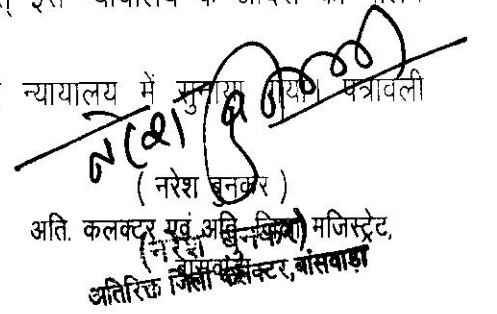 इस न्यायालय के आदेश की पालन
न्यायालय में सुनाया गया। पत्रावली
( नरेश बुनकर )
अति. कलक्टर एवं अति. जिला मजिस्ट्रेट,
बांसवाड़ा
(नरेश बुनकर)
अतिरिक्त जिला कलेक्टर, बांसवाड़ा